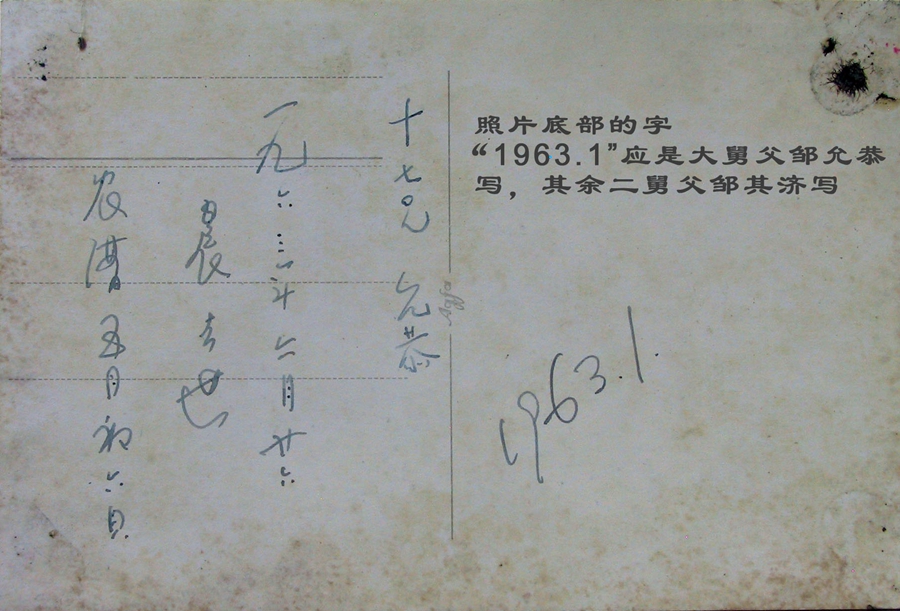 照片底部的字
“1963.1”应是大舅父邹允恭
写，其余二舅父邹其济写
十七兄 允恭
一九六三年六月廿六
日晨去世
农历五月初六日
Agfa
1963.1.